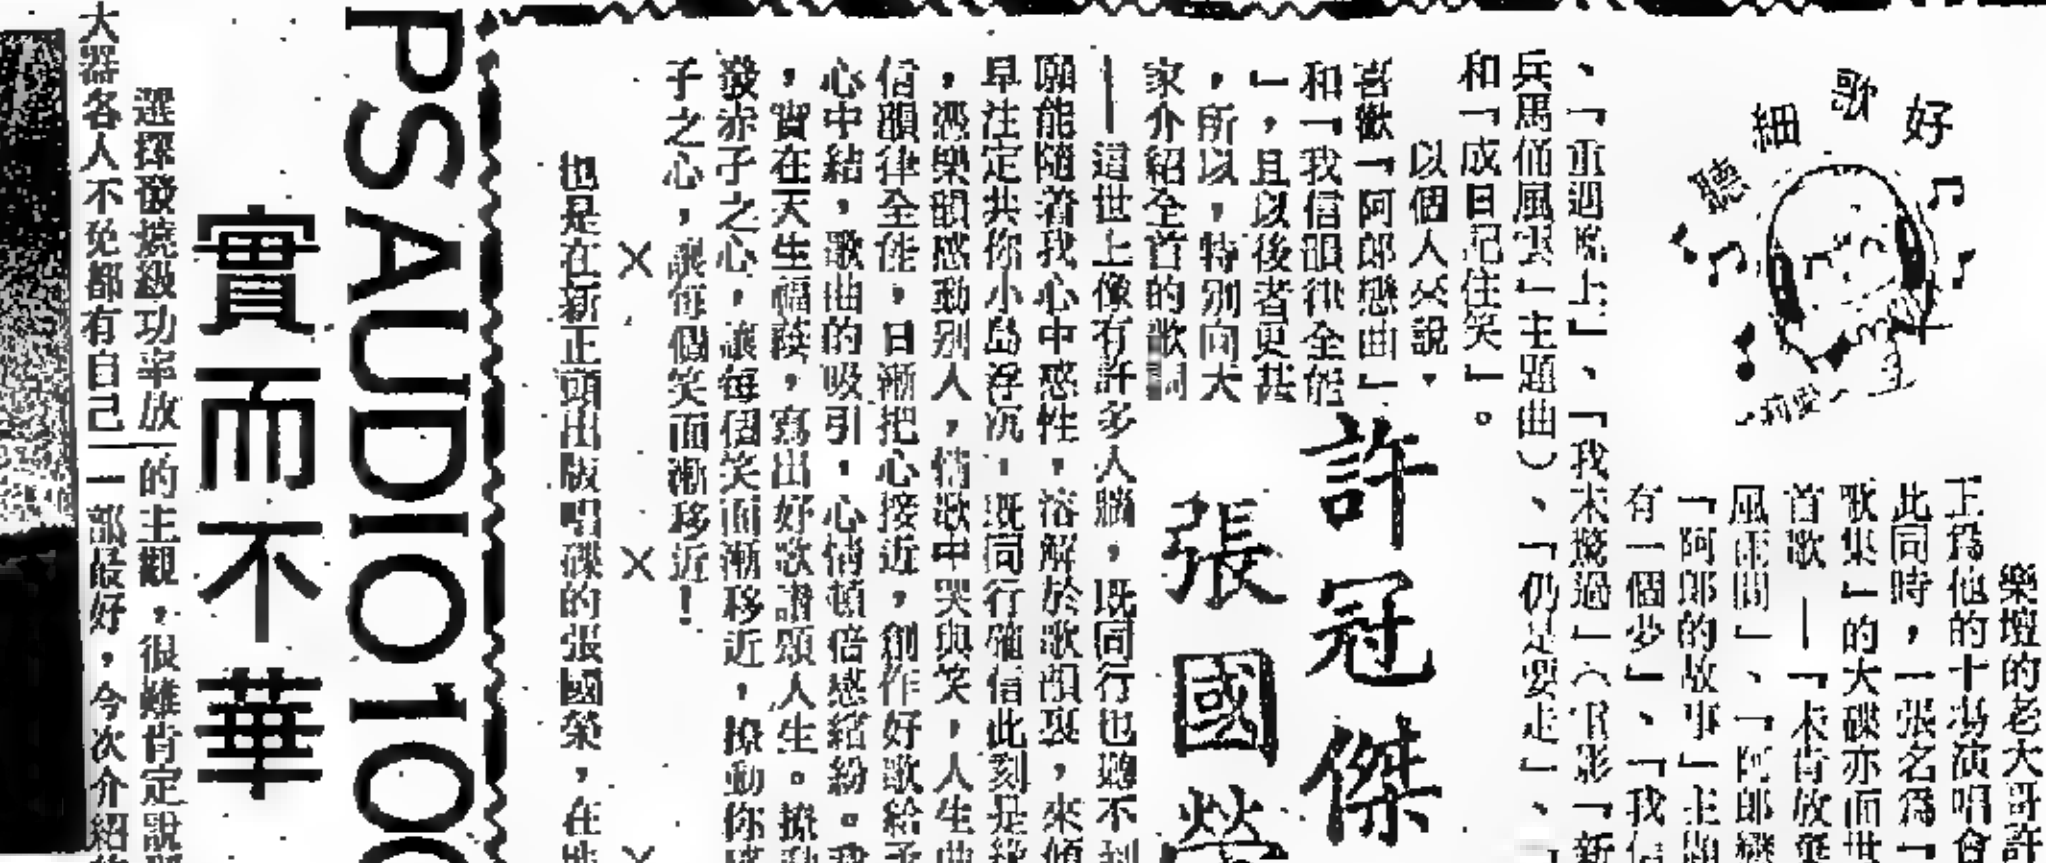 好歌細聽
樂壇的老大哥許
正爲他的十場演唱會
此同時，一張名爲「
歌集」的大碟亦面世
首歌——「未肯放棄
風雨間」、「阿郎戀
「阿郎的故事」主題
有一個夢」、「我信
、「重遇晚上」、「我未驚過」（電影「新
兵馬俑風雲」主題曲）、「仍是要走」、
和「成日記住笑」。
以個人來說，
喜歡「阿郎戀曲」
和「我信韻律全能
」，且以後者更甚
，所以，特別向大
家介紹全首的歌詞
——這世上像有許多人牆，既同行也趕不到
願能隨着我心中感性，溶解於歌韻裏，來傾
早注定共你小島浮沉，既同行確信此刻是緣
，憑樂韻感動別人，情歌中哭與笑，人生曲
信韻律全能，日漸把心接近，創作好歌給予
心中結，歌曲的吸引，心情頓倍感繽紛。我
，實在天生福蔭，寫出好歌譜頌人生。撩動
發赤子之心，讓每個笑面漸移近，撩動你發
子之心，讓每個笑面漸移近！
許冠傑
張國榮
×　×　×
也是在新正頭出版唱碟的張國榮，在
PSAUDIO100
實而不華
選擇發燒級功率放
大器各人不免都有自己
的主觀，很難肯定說那
一部最好，今次介紹的